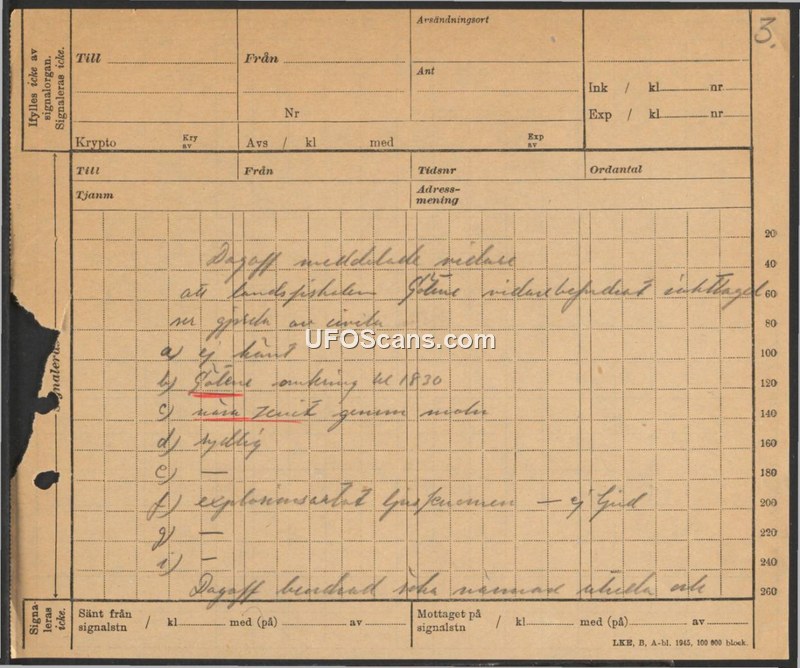 3.
Ifylles icke av
signalorgan.
Signaleras icke.
Till
Från
Avsändningsort
Ant
Nr
Ink / kl nr
Exp / kl nr
Krypto Kry av
Avs / kl med Exp av
Till Från Tidsnr Ordantal
Tjanm Adress-
mening
20
Dagoff meddelade vidare
40
att landsfiskalen Götene vidarebefordrat iakttagel
60
ser gjorda av civila
80
UFOScans.com
a) ej känt
100
b) Götene omkring kl 1830
120
Signaleras
c) nära zenit genom moln
140
d) sydlig
160
e) —
180
f) explosionsartat ljusfenomen — ej ljud
200
g) —
220
i) —
240
Dagoff beordrad söka närmare utreda och
260
Signa-
leras
icke.
Sänt från
signalstn / kl med (på) av
Mottaget på
signalstn / kl med (på) av
LKE, B, A-bl. 1945, 100 000 block.